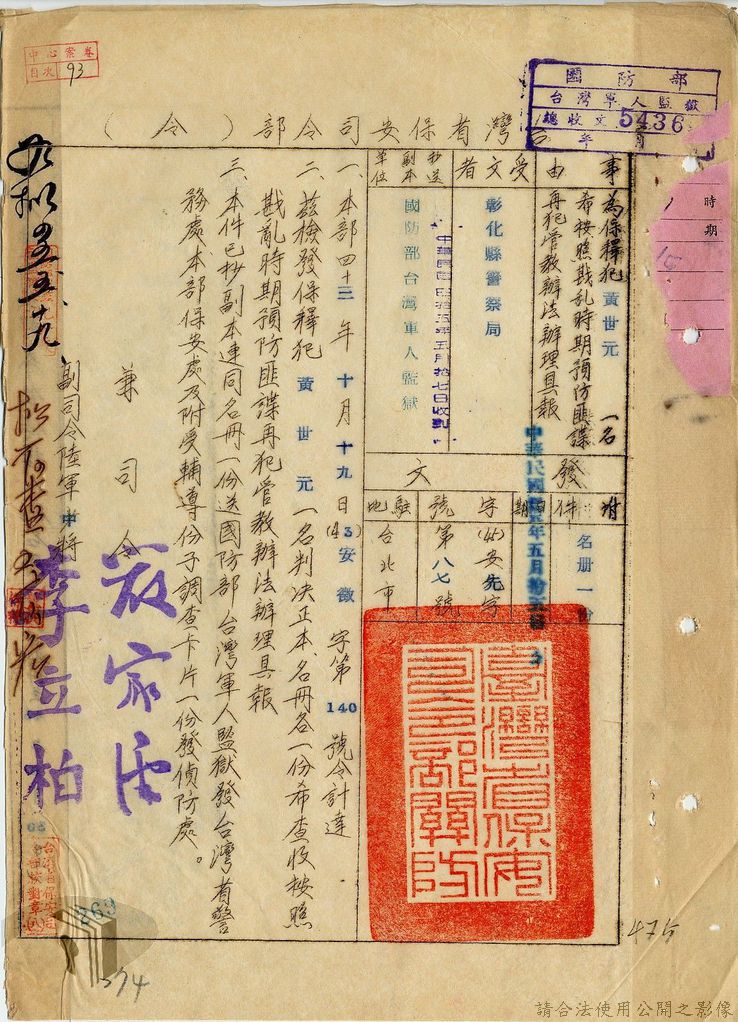 中心案卷
目次 93
國防部
台灣軍人監獄
總收文 5436
年 月
台灣省保安司令部（令）
事由
為保釋犯黃世元一名
希按照戡乱時期預防匪諜
再犯管教辦法辦理具報
受文者
彰化縣警察局
抄送副本單位
國防部台灣軍人監獄
中華民國四拾五年五月拾七日收到
附件
名册一份
發文
日期
字號
(45)安先字
第八七號
駐地
台北市
臺灣省保安司令部關防
一、本部四十三年十月十九日(43)安徽字第140號令計達
二、茲檢發保釋犯黃世元一名判决正本、名冊各一份希查收按照
戡亂時期預防匪諜再犯管教辦法辦理具報
三、本件已抄副本連同名冊一份送國防部台灣軍人監獄發台灣省警
務處本部保安處及附受輔導份子調查卡片一份發偵防處。
兼司令
副司令陸軍中將
李立柏
時期
263
474
請合法使用公開之影像